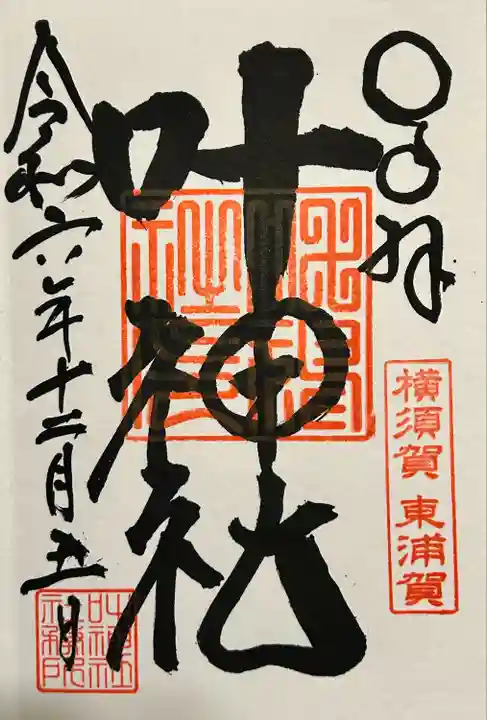 奉拝
横須賀 東浦賀
叶神社
令和六年十二月五日
叶神社